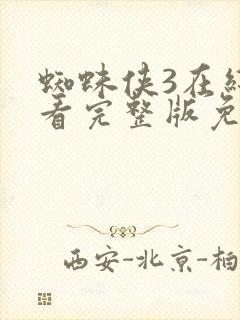 蜘蛛侠3在
看完整版免
西安-北京-柏